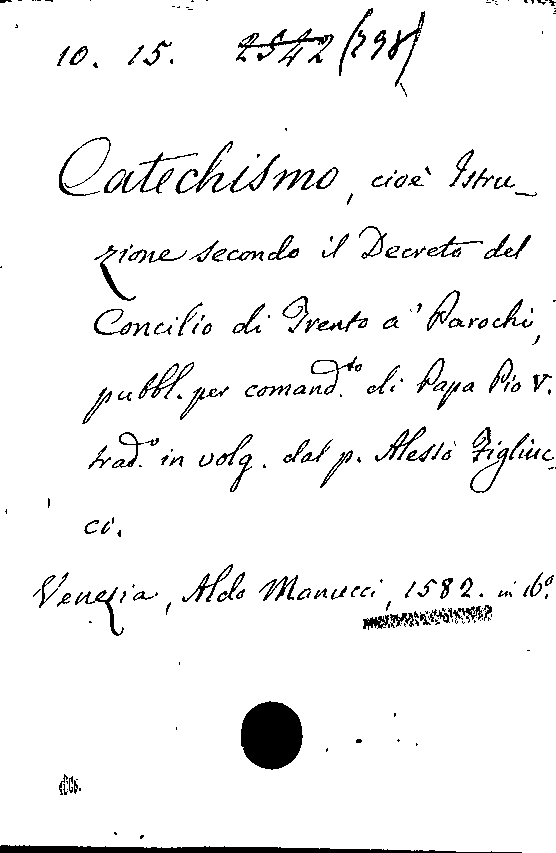 10. 15. 2542 (298)
Catechismo, cioè Istru-
zione secondo il Decreto del
Concilio di Trento a' Parochi,
pubbl. per comand.to di Papa Pio V.
trad.o in volg. dal p. Alessò Figliuc-
ci.
Venezia, Aldo Manucci, 1582. in 16.o